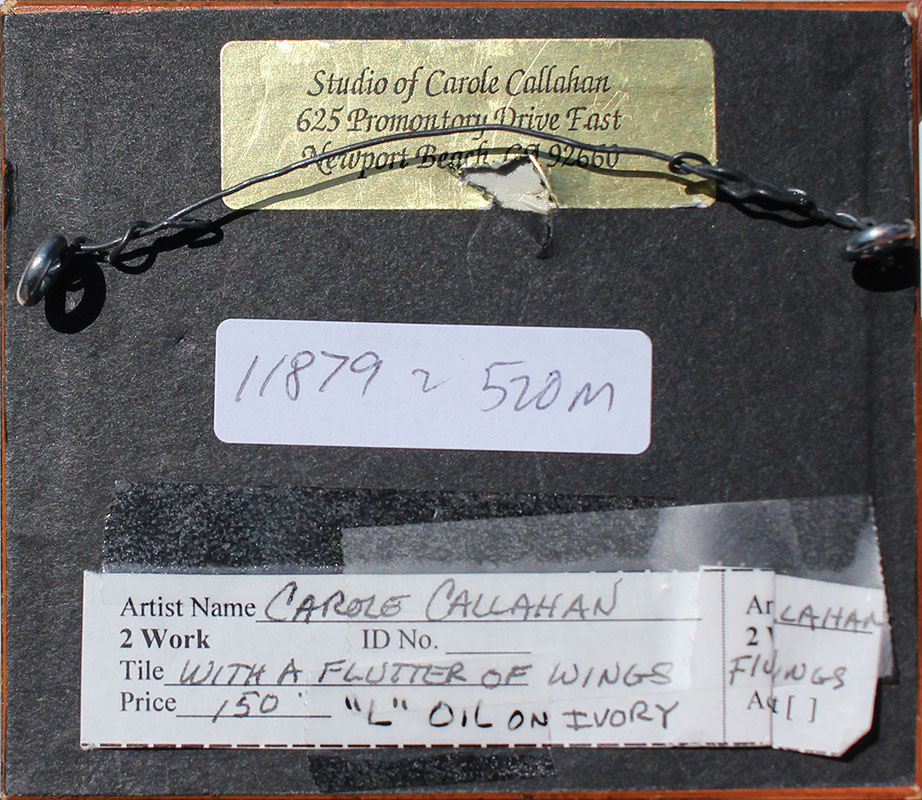 Studio of Carole Callahan
625 Promontory Drive East
Newport Beach, CA 92660
11879 ~ 520m
Artist Name CAROLE CALLAHAN
2 Work ID No.
Tile WITH A FLUTTER OF WINGS
Price 150 "L" OIL ON IVORY
Ar LAHAN
2
INGS
[ ]